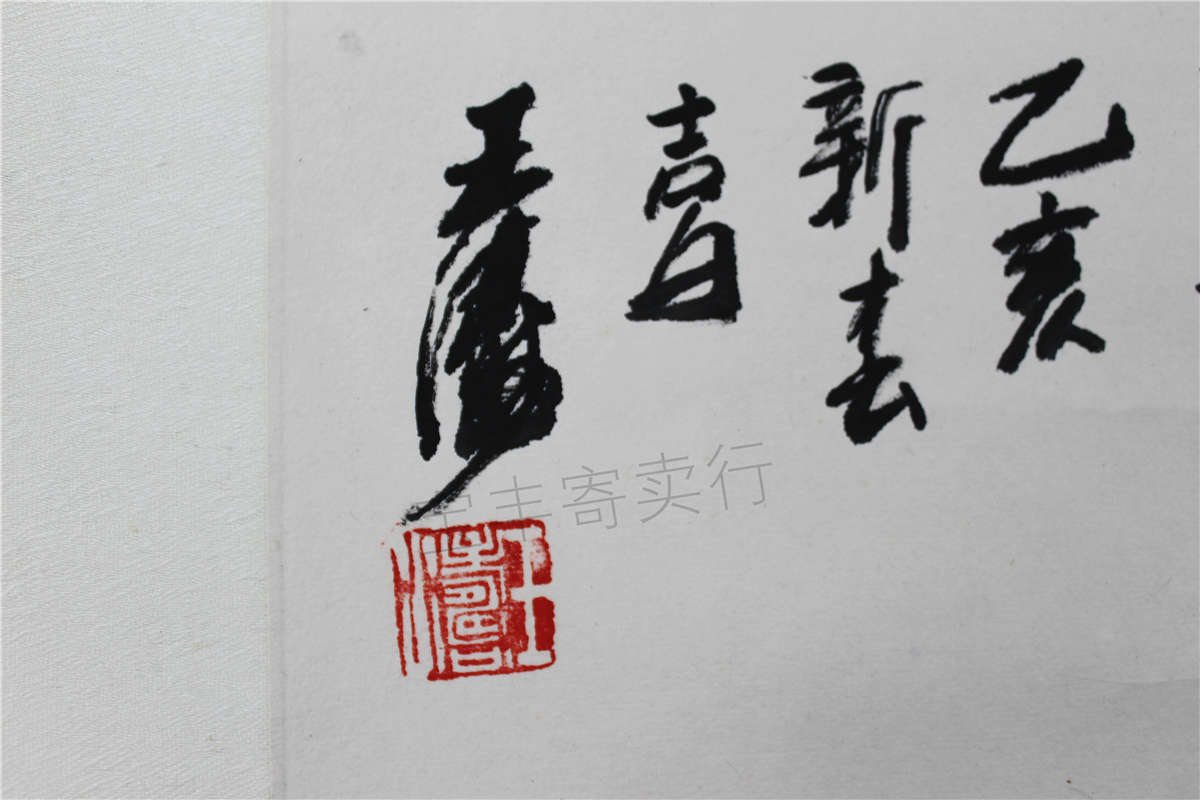 乙亥
新春
吉日
王涛
丰寄卖行
王涛